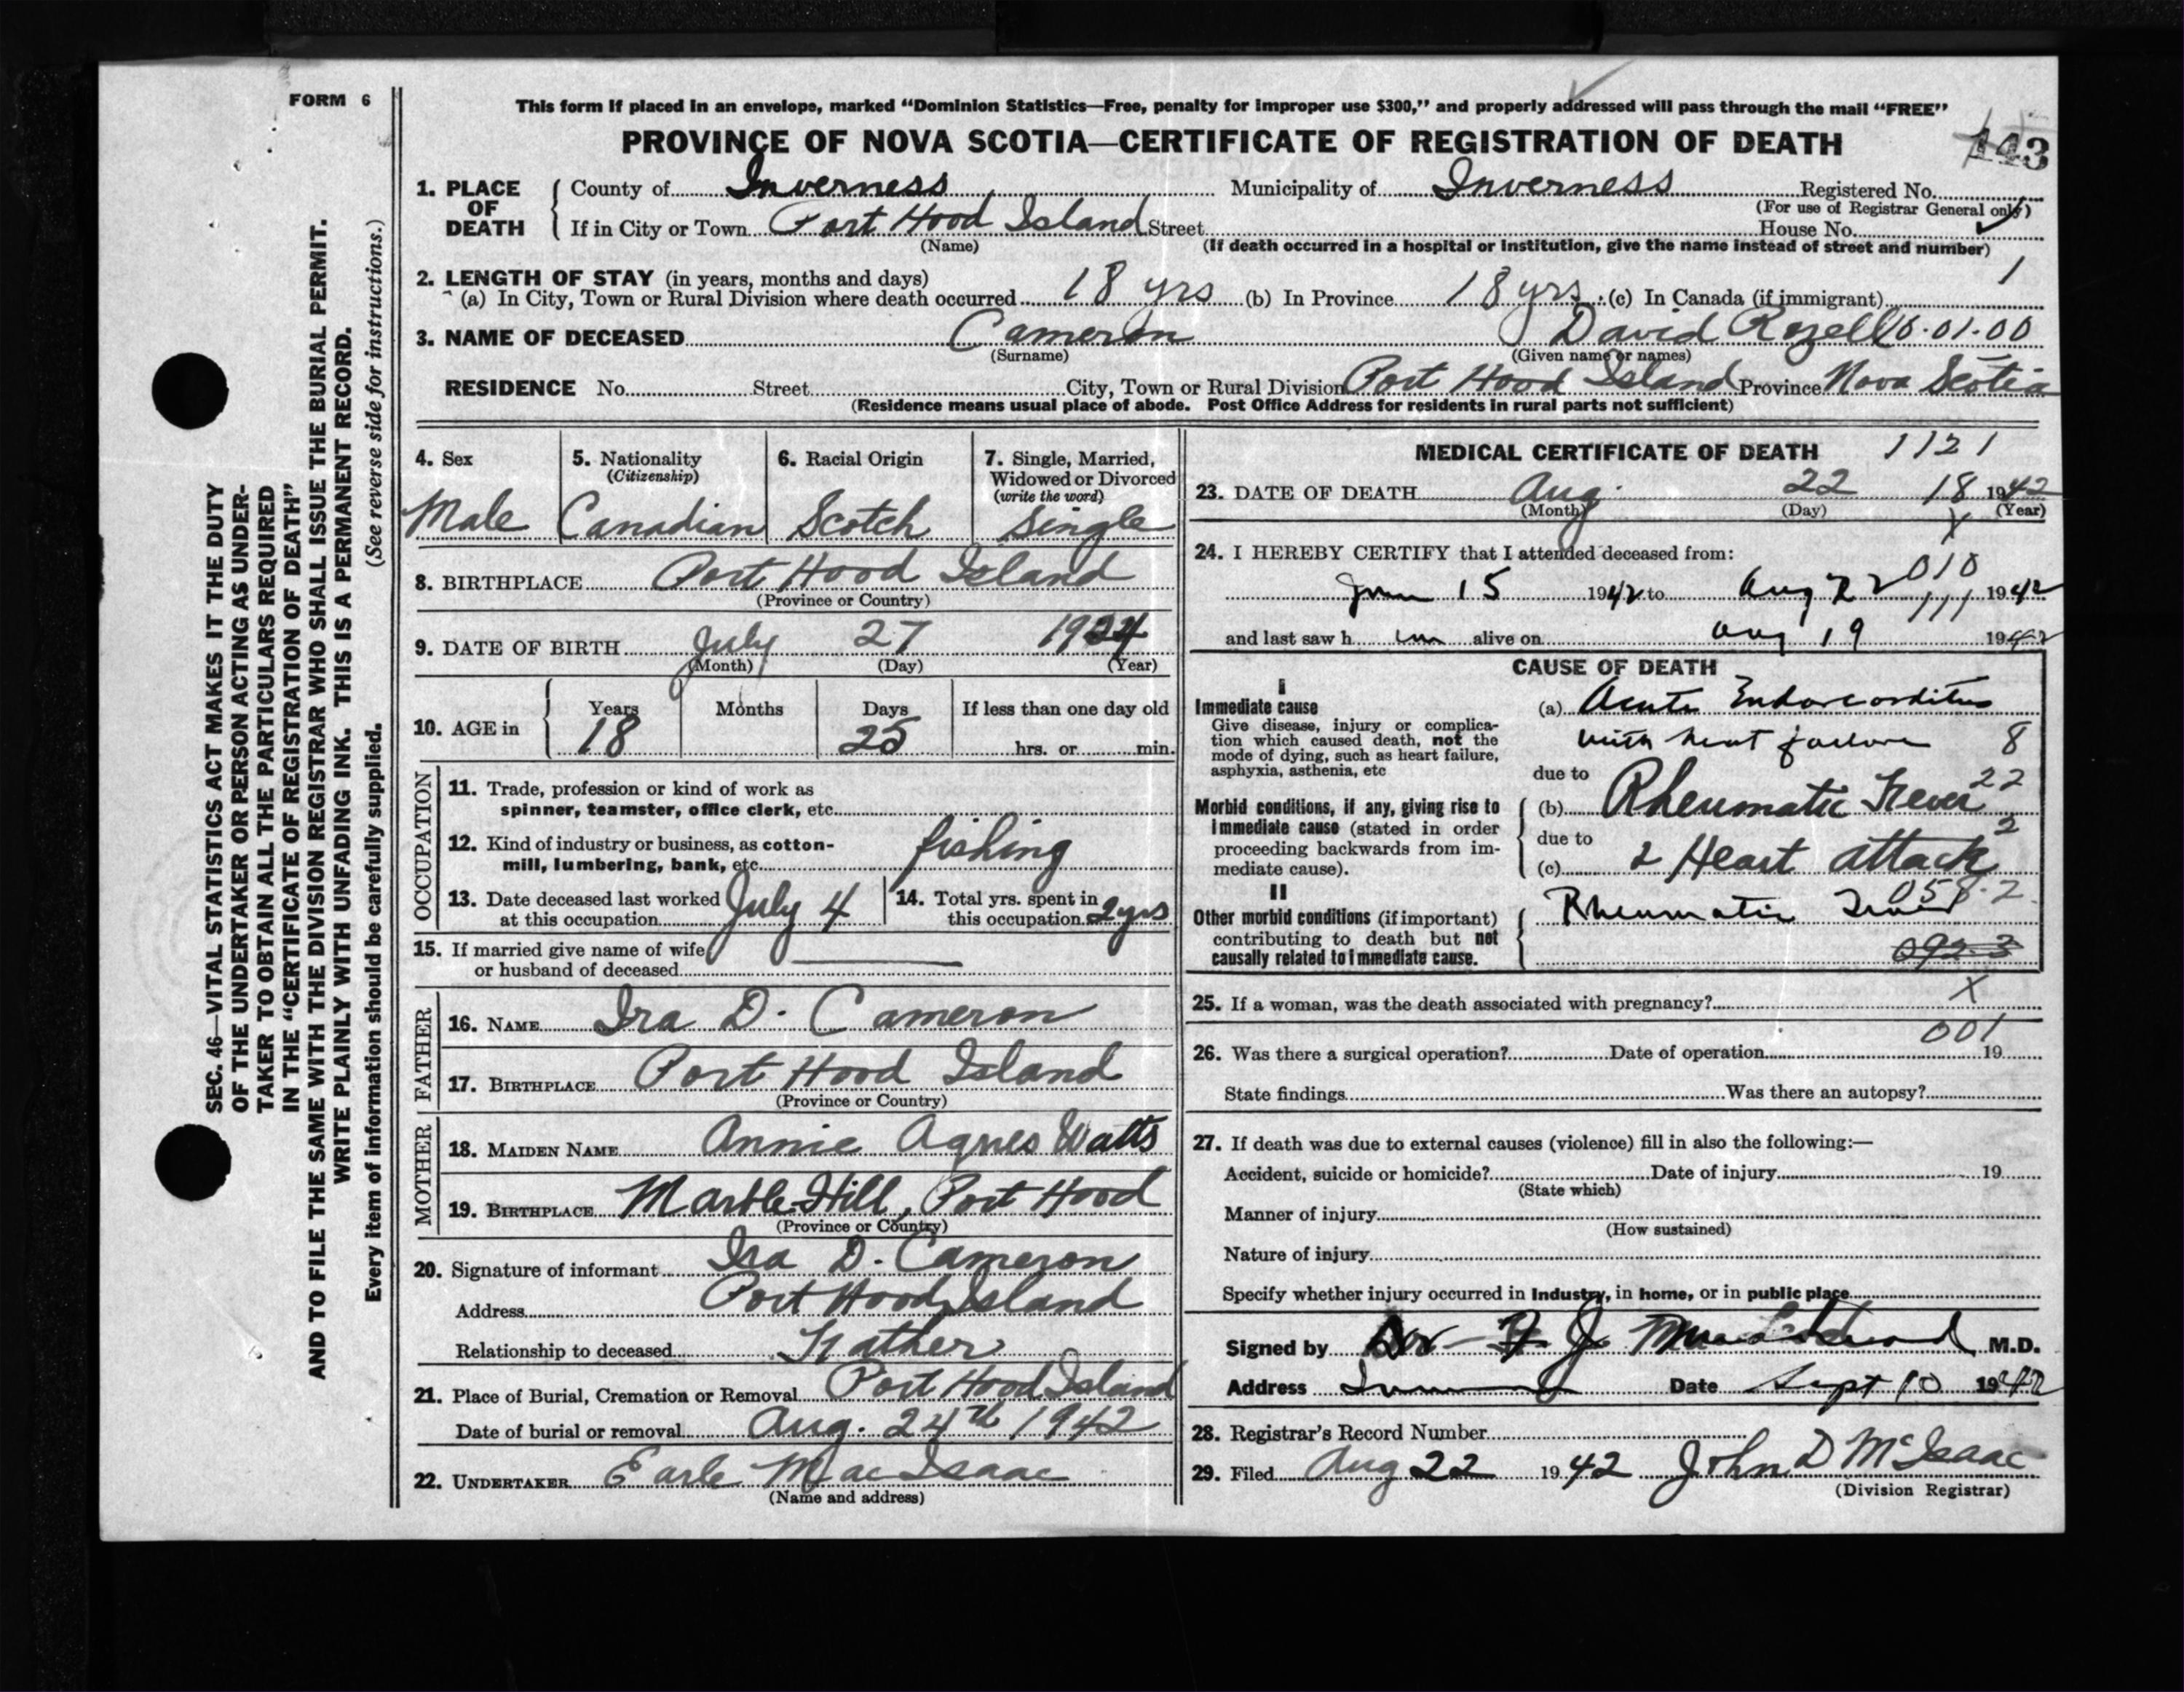 FORM 6
This form if placed in an envelope, marked “Dominion Statistics—Free, penalty for improper use $300,” and properly addressed will pass through the mail “FREE”
PROVINCE OF NOVA SCOTIA—CERTIFICATE OF REGISTRATION OF DEATH
143
1. PLACE OF DEATH
County of Inverness Municipality of Inverness Registered No.
(For use of Registrar General only)
If in City or Town Port Hood Island Street House No.
(Name) (If death occurred in a hospital or institution, give the name instead of street and number)
2. LENGTH OF STAY (in years, months and days) 1
(a) In City, Town or Rural Division where death occurred 18 yrs (b) In Province 18 yrs. (c) In Canada (if immigrant)
3. NAME OF DECEASED Cameron David Rozell 6.01.00
(Surname) (Given name or names)
RESIDENCE No. Street City, Town or Rural Division Port Hood Island Province Nova Scotia
(Residence means usual place of abode. Post Office Address for residents in rural parts not sufficient)
4. Sex
Male
5. Nationality
(Citizenship)
Canadian
6. Racial Origin
Scotch
7. Single, Married, Widowed or Divorced
(write the word)
Single
8. BIRTHPLACE Port Hood Island
(Province or Country)
9. DATE OF BIRTH July 27 1924
(Month) (Day) (Year)
10. AGE in Years Months Days If less than one day old
18 25 hrs. or min.
OCCUPATION
11. Trade, profession or kind of work as
spinner, teamster, office clerk, etc.
12. Kind of industry or business, as cotton-
mill, lumbering, bank, etc. fishing
13. Date deceased last worked
at this occupation July 4
14. Total yrs. spent in
this occupation 2yrs
15. If married give name of wife
or husband of deceased
FATHER
16. NAME Ira D. Cameron
17. BIRTHPLACE Port Hood Island
(Province or Country)
MOTHER
18. MAIDEN NAME Annie Agnes Watts
19. BIRTHPLACE Marble Hill, Port Hood
(Province or Country)
20. Signature of informant Ira D. Cameron
Address Port Hood Island
Relationship to deceased Father
21. Place of Burial, Cremation or Removal Port Hood Island
Date of burial or removal Aug. 24th 1942
22. UNDERTAKER Earle MacIsaac
(Name and address)
MEDICAL CERTIFICATE OF DEATH 1121
23. DATE OF DEATH Aug. 22 18 1942
(Month) (Day) (Year)
X
24. I HEREBY CERTIFY that I attended deceased from:
010
June 15 1942 to Aug 22 1942
111
and last saw h im alive on Aug 19 1942
CAUSE OF DEATH
I
Immediate cause
Give disease, injury or complica-
tion which caused death, not the
mode of dying, such as heart failure,
asphyxia, asthenia, etc
(a) Acute Endocarditis
with heart failure 8
due to
Morbid conditions, if any, giving rise to
immediate cause (stated in order
proceeding backwards from im-
mediate cause).
(b) Rheumatic Fever 22
due to
(c) 2 Heart attack 2
II
Other morbid conditions (if important)
contributing to death but not
causally related to immediate cause.
Rheumatic Fever 058.2
092-3
25. If a woman, was the death associated with pregnancy? X
001
26. Was there a surgical operation? Date of operation 19
State findings Was there an autopsy?
27. If death was due to external causes (violence) fill in also the following:—
Accident, suicide or homicide? Date of injury 19
(State which)
Manner of injury
(How sustained)
Nature of injury
Specify whether injury occurred in Industry, in home, or in public place
Signed by Dr J M.D.
Address Date Sept 10 1942
28. Registrar's Record Number
29. Filed Aug 22 1942 John D McIsaac
(Division Registrar)
SEC. 46—VITAL STATISTICS ACT MAKES IT THE DUTY
OF THE UNDERTAKER OR PERSON ACTING AS UNDER-
TAKER TO OBTAIN ALL THE PARTICULARS REQUIRED
IN THE “CERTIFICATE OF REGISTRATION OF DEATH”
AND TO FILE THE SAME WITH THE DIVISION REGISTRAR WHO SHALL ISSUE THE BURIAL PERMIT.
WRITE PLAINLY WITH UNFADING INK. THIS IS A PERMANENT RECORD.
Every item of information should be carefully supplied. (See reverse side for instructions.)